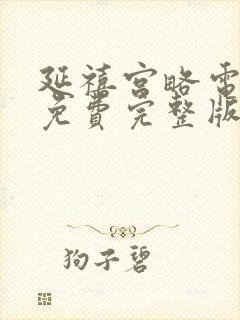 延禧宫略電
免費完整版
狗子碧